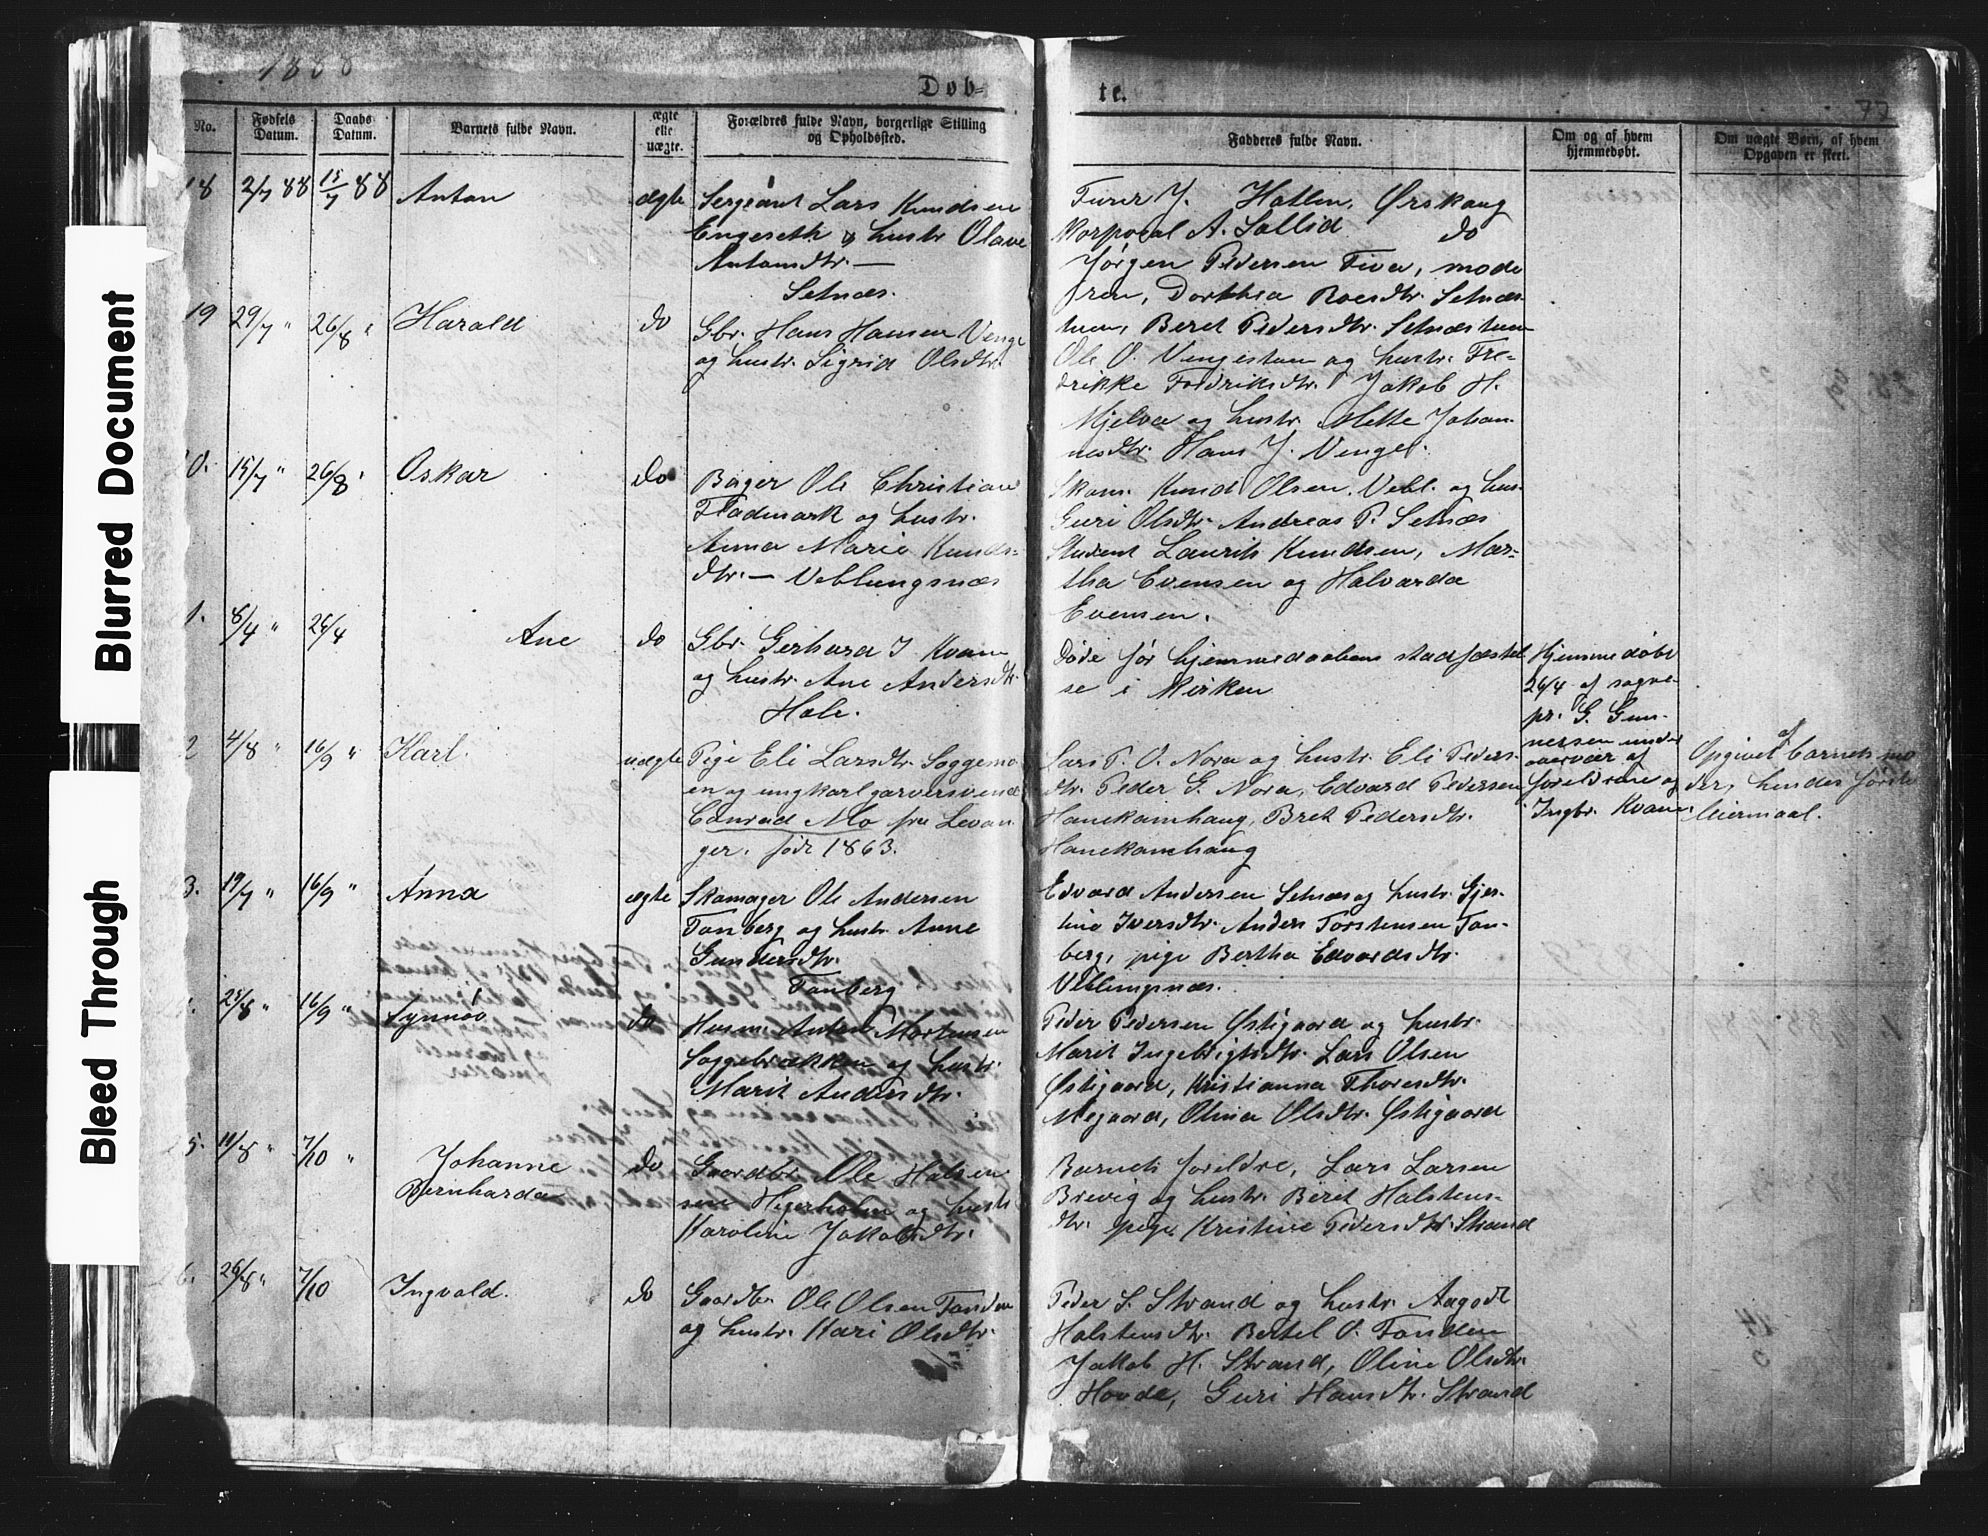 Blurred Document
Bleed Through
1888
Døb-
te.
77
No.
Fødsels
Datum.
Daabs
Datum.
Barnets fulde Navn.
ægte
elle
uægte.
Forældres fulde Navn, borgerlige Stilling
og Opholdssted.
Fadderes fulde Navn.
Om og af hvem
hjemmedøbt.
Om uægte Børn, af hvem
Opgaven er skeet.
18 2/7 88 15/7 88 Anton ægte
Sergeant Lars Knudsen
Engeseth og hustr Olave
Antonsdtr. —
Setnæs.
Hatlen, Ørskaug
Korporal A. Sollid do
Jørgen Pedersen Fiva, mode
ren, Dorthea Roesdtr. Setnæs
tuen, Beret Pedersdtr. Setnæstuen
19 29/7 " 26/8 " Harald do
Gbr. Hans Hansen Venge
og hustr. Sigrid Olsdtr.
Ole O. Vengestuen og hustr. Fre-
drikke Fredriksdtr. Jakob H.
Mjelva og hustr. Mette Johan-
nesdtr. Hans J. Venge.
0. 15/7 " 26/8 " Oskar do
Bager Ole Christian
Fladmark og hustr.
Anna Marie Knuds-
dtr. — Veblungsnæs
Skom. Knud Olsen. Vebl. og hus.
Guri Olsdtr. Andreas P. Setnæs
Student Laurits Knudsen, Mar-
tha Evensen og Halvarda
Evensen.
1. 8/4 " 26/4 Ane do
Gbr. Gerhard J Kvam
og hustr. Ane Andersdtr.
Hole.
Døde før hjemmedaabens stadfæstel
se i Kirken
Hjemmedøbt
26/4 af sogne-
pr. G. Gun-
nersen under
overvær af
foreldrene og
Ingbr. Kvam.
2 4/8 " 16/9 " Karl. uægte
Pige Eli Larsdtr. Soggemo-
en og ungkarl garversvend
Conrad Mo fra Levan-
ger. født 1863.
Lars P. O. Nora og hustr. Eli Peders-
dtr. Peder G. Nora, Edvard Pedersen
Hanekamhaug, Bret Pedersdtr.
Hanekamhaug
Opgivet af barnets mo
der, hendes første
leiermaal.
3. 19/7 " 16/9 " Anna ægte
Skomager Ole Andersen
Tanberg og hustr. Anne
Gundersdtr.
Tanberg
Edvard Andersen Setnæs og hustr. Gjer-
tine Iversdtr. Anders Torstensen Tan-
berg, pige Bertha Edvardsdtr.
Veblungsnæs.
25/8 " 16/9 " Synnøv do
Husm. Anton Mortensen
Soggebrækken og hustr.
Marit Andersdtr.
Peder Pedersen Østigaard og hustr.
Marit Ingebrigtsdtr. Lars Olsen
Østigaard, Kristianna Thoresdtr.
Megaard, Olina Olsdtr. Østigaard
5. 11/8 " 7/10 " Johanne
Bernharda do
Gaardbr. Ole Halsen
sen Hegerholm og hustr.
Karoline Jakobsdtr.
Barnets foreldre, Lars Larsen
Brevig og hustr. Berit Halstens-
dtr. pige Kristine Pedersdtr. Strand
6. 26/8 " 7/10 Ingvald. do
Gaardbr. Ole Olsen Tonden
og hustr. Kari Olsdtr.
Peder S. Strand og hustr. Aagodt
Halstensdtr. Bertel O. Tonden
Jakob H. Strand, Oline Olsdtr.
Hovde, Guri Hansdtr. Strand